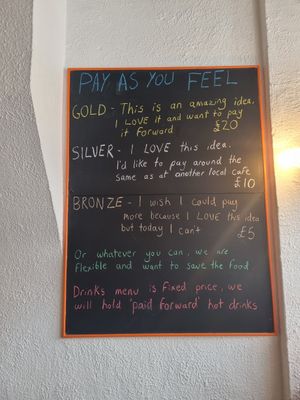 PAY AS YOU FEEL
GOLD - This is an amazing idea,
I LOVE it and want to pay
it forward £20
SILVER - I LOVE this idea.
I'd like to pay around the
same as at another local cafe
£10
BRONZE - I wish I could pay
more because I LOVE this idea
but today I can't £5
Or whatever you can, we are
flexible and want to save the food
Drinks menu is fixed price, we
will hold 'paid forward' hot drinks